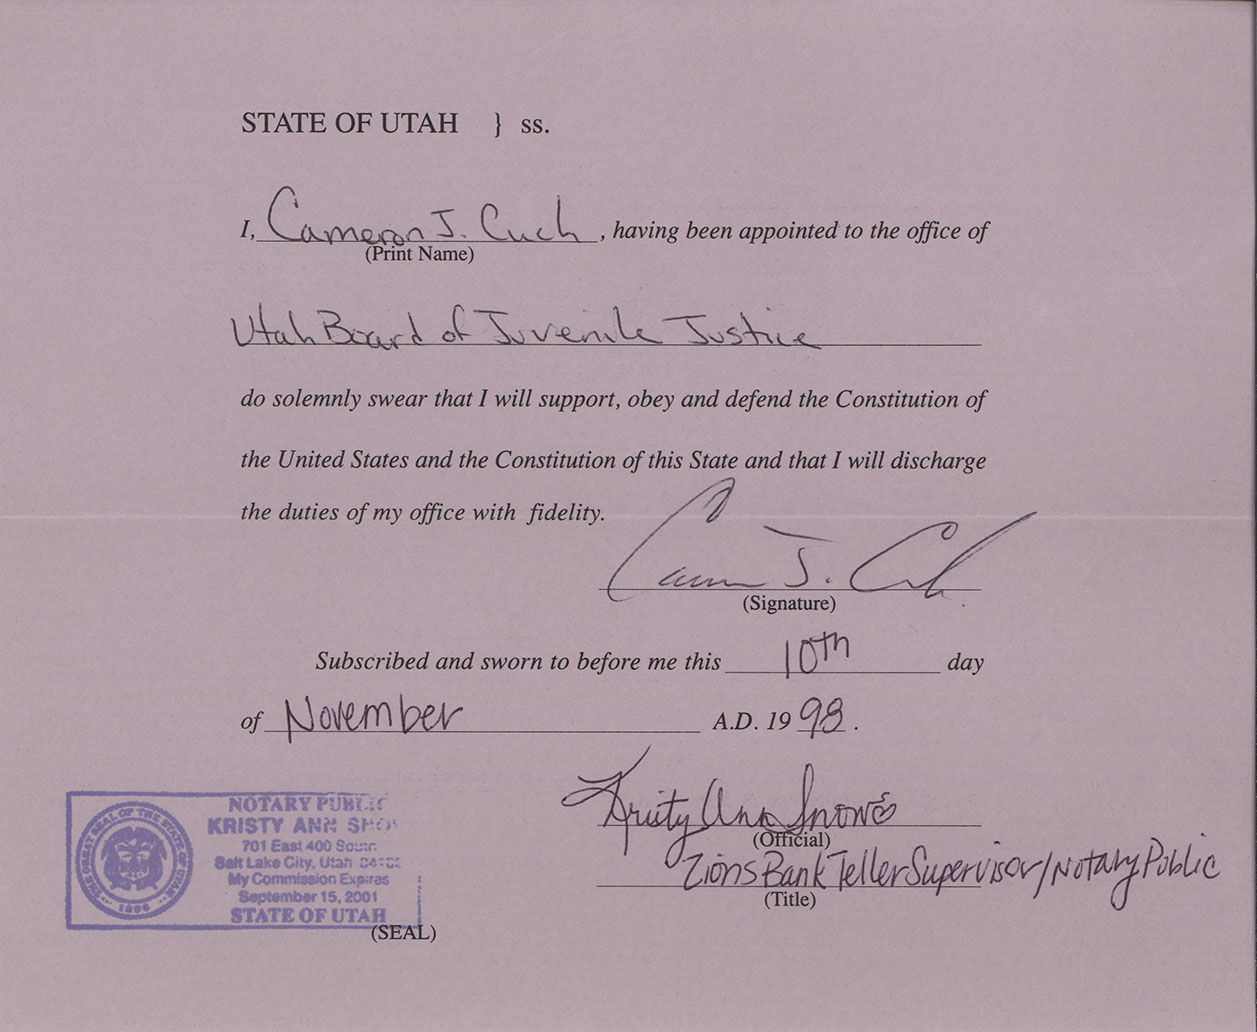 STATE OF UTAH } ss.
I, Cameron J. Cuch, having been appointed to the office of
(Print Name)
Utah Board of Juvenile Justice
do solemnly swear that I will support, obey and defend the Constitution of
the United States and the Constitution of this State and that I will discharge
the duties of my office with fidelity.
Cameron J. Cuch
(Signature)
Subscribed and sworn to before me this 10th day
of November A.D. 19 98.
Kristy Ann Snow
(Official)
Zions Bank Teller Supervisor/Notary Public
(Title)
NOTARY PUBLIC
KRISTY ANN
701 East 400 South
Salt Lake City, Utah
My Commission Expires
September 15, 2001
STATE OF UTAH
(SEAL)
THE GREAT SEAL OF THE STATE OF UTAH
1896